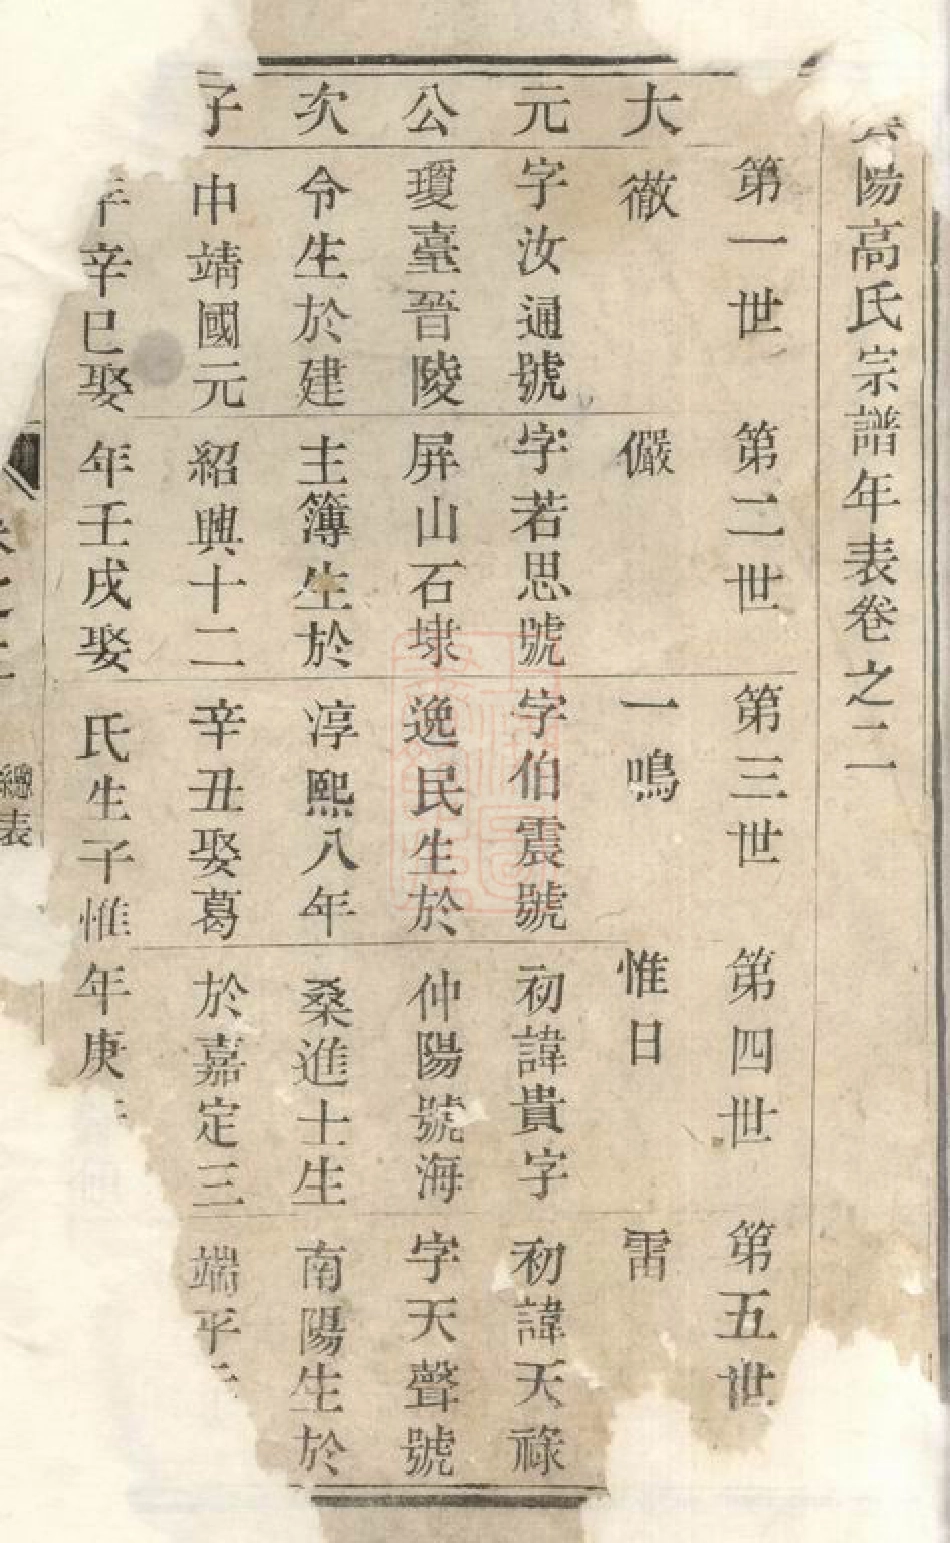 陽高氏宗譜年表卷之二
第一世 第二世 第三世 第四世 第五世
大 徹 儼 一鳴 惟日 雷
元 字汝通號 字若思號 字伯震號 初諱貴字 初諱天祿
公 瓊臺晉陵 屏山石埭 逸民生於 仲陽號海 字天聲號
次 令生於建 主簿生於 淳熙八年 桑進士生 南陽生於
子 中靖國元 紹興十二 辛丑娶葛 於嘉定三 端平
年辛巳娶 年壬戌娶 氏生子惟 年庚
之二 總表